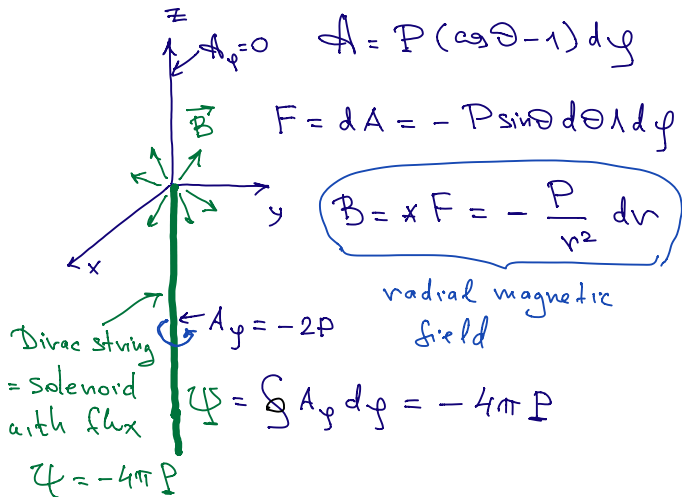 z
A_φ=0
A = P (cosθ-1) dφ
B⃗
F = dA = - P sinθ dθ ∧ dφ
y
x
B = * F = - P/r² dr
radial magnetic
field
A_φ = -2P
Dirac string
= solenoid
with flux
Ψ = -4π P
Ψ = ∮ A_φ dφ = - 4π P